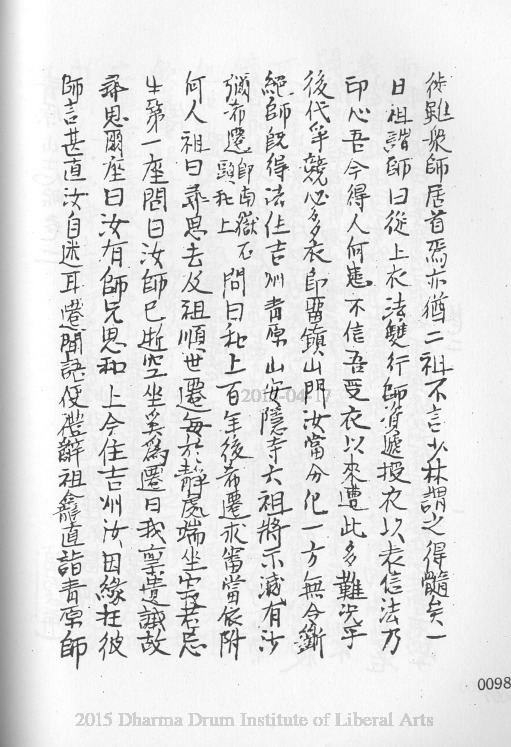 徒雖衆師居首焉亦猶二祖不言少林謂之得髓矣一
日祖謂師曰從上衣法雙行師資遞授衣以表信法乃
印心吾今得人何患不信吾受衣以來遭此多難況乎
後代爭競必多衣即留鎮山門汝當分化一方無令斷
絕師既得法住吉州青原山安隱寺六祖將示滅有沙
彌希遷即南嶽石頭和上問曰和上百年後希遷未審當依附
何人祖曰尋思去及祖順世遷每於靜處端坐寂若忘
生第一座問曰汝師已逝空坐奚為遷曰我稟遺誡故
尋思爾座曰汝有師兄思和上今住吉州汝因緣在彼
師言甚直汝自迷耳遷聞語便禮辭祖龕直詣青原師
0098
2015-04-17
2015 Dharma Drum Institute of Liberal Arts